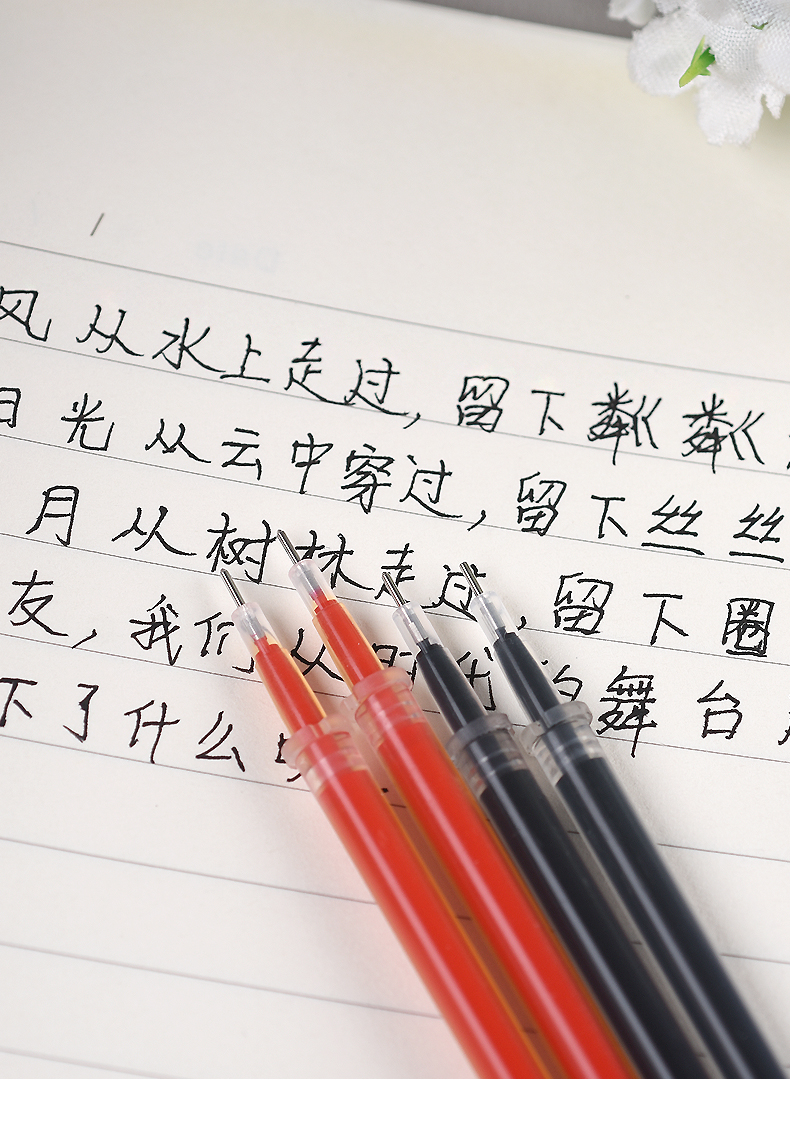 风从水上走过, 留下粼粼
光从云中穿过, 留下丝丝
月从树林走过, 留下圈
友, 我们从时代的舞台
下了什么